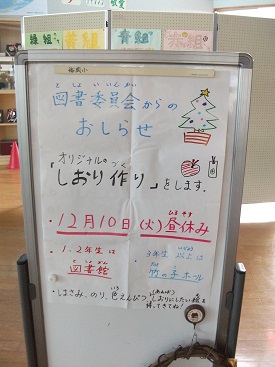 緑組 黄組 青組
図書委員会からの
としょいいんかい
おしらせ
オリジナルの
「しおり作り」をします。
づく
・12月10日(火)昼休み
ひるやす
・1、2年生は
図書館
・3年生以上は
竹の子ホール
・はさみ、のり、色えんぴつ
いろ
しおりにしたい絵を
持ってきてね!